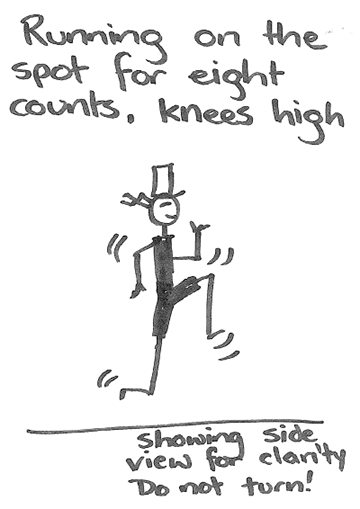 Running on the
spot for eight
counts, knees high
showing side
view for clarity
Do not turn!